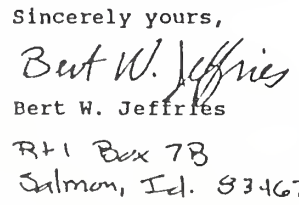 Sincerely yours,
Bert W. Jeffries
Bert W. Jeffries
Rt 1 Box 7B
Salmon, Id. 83467